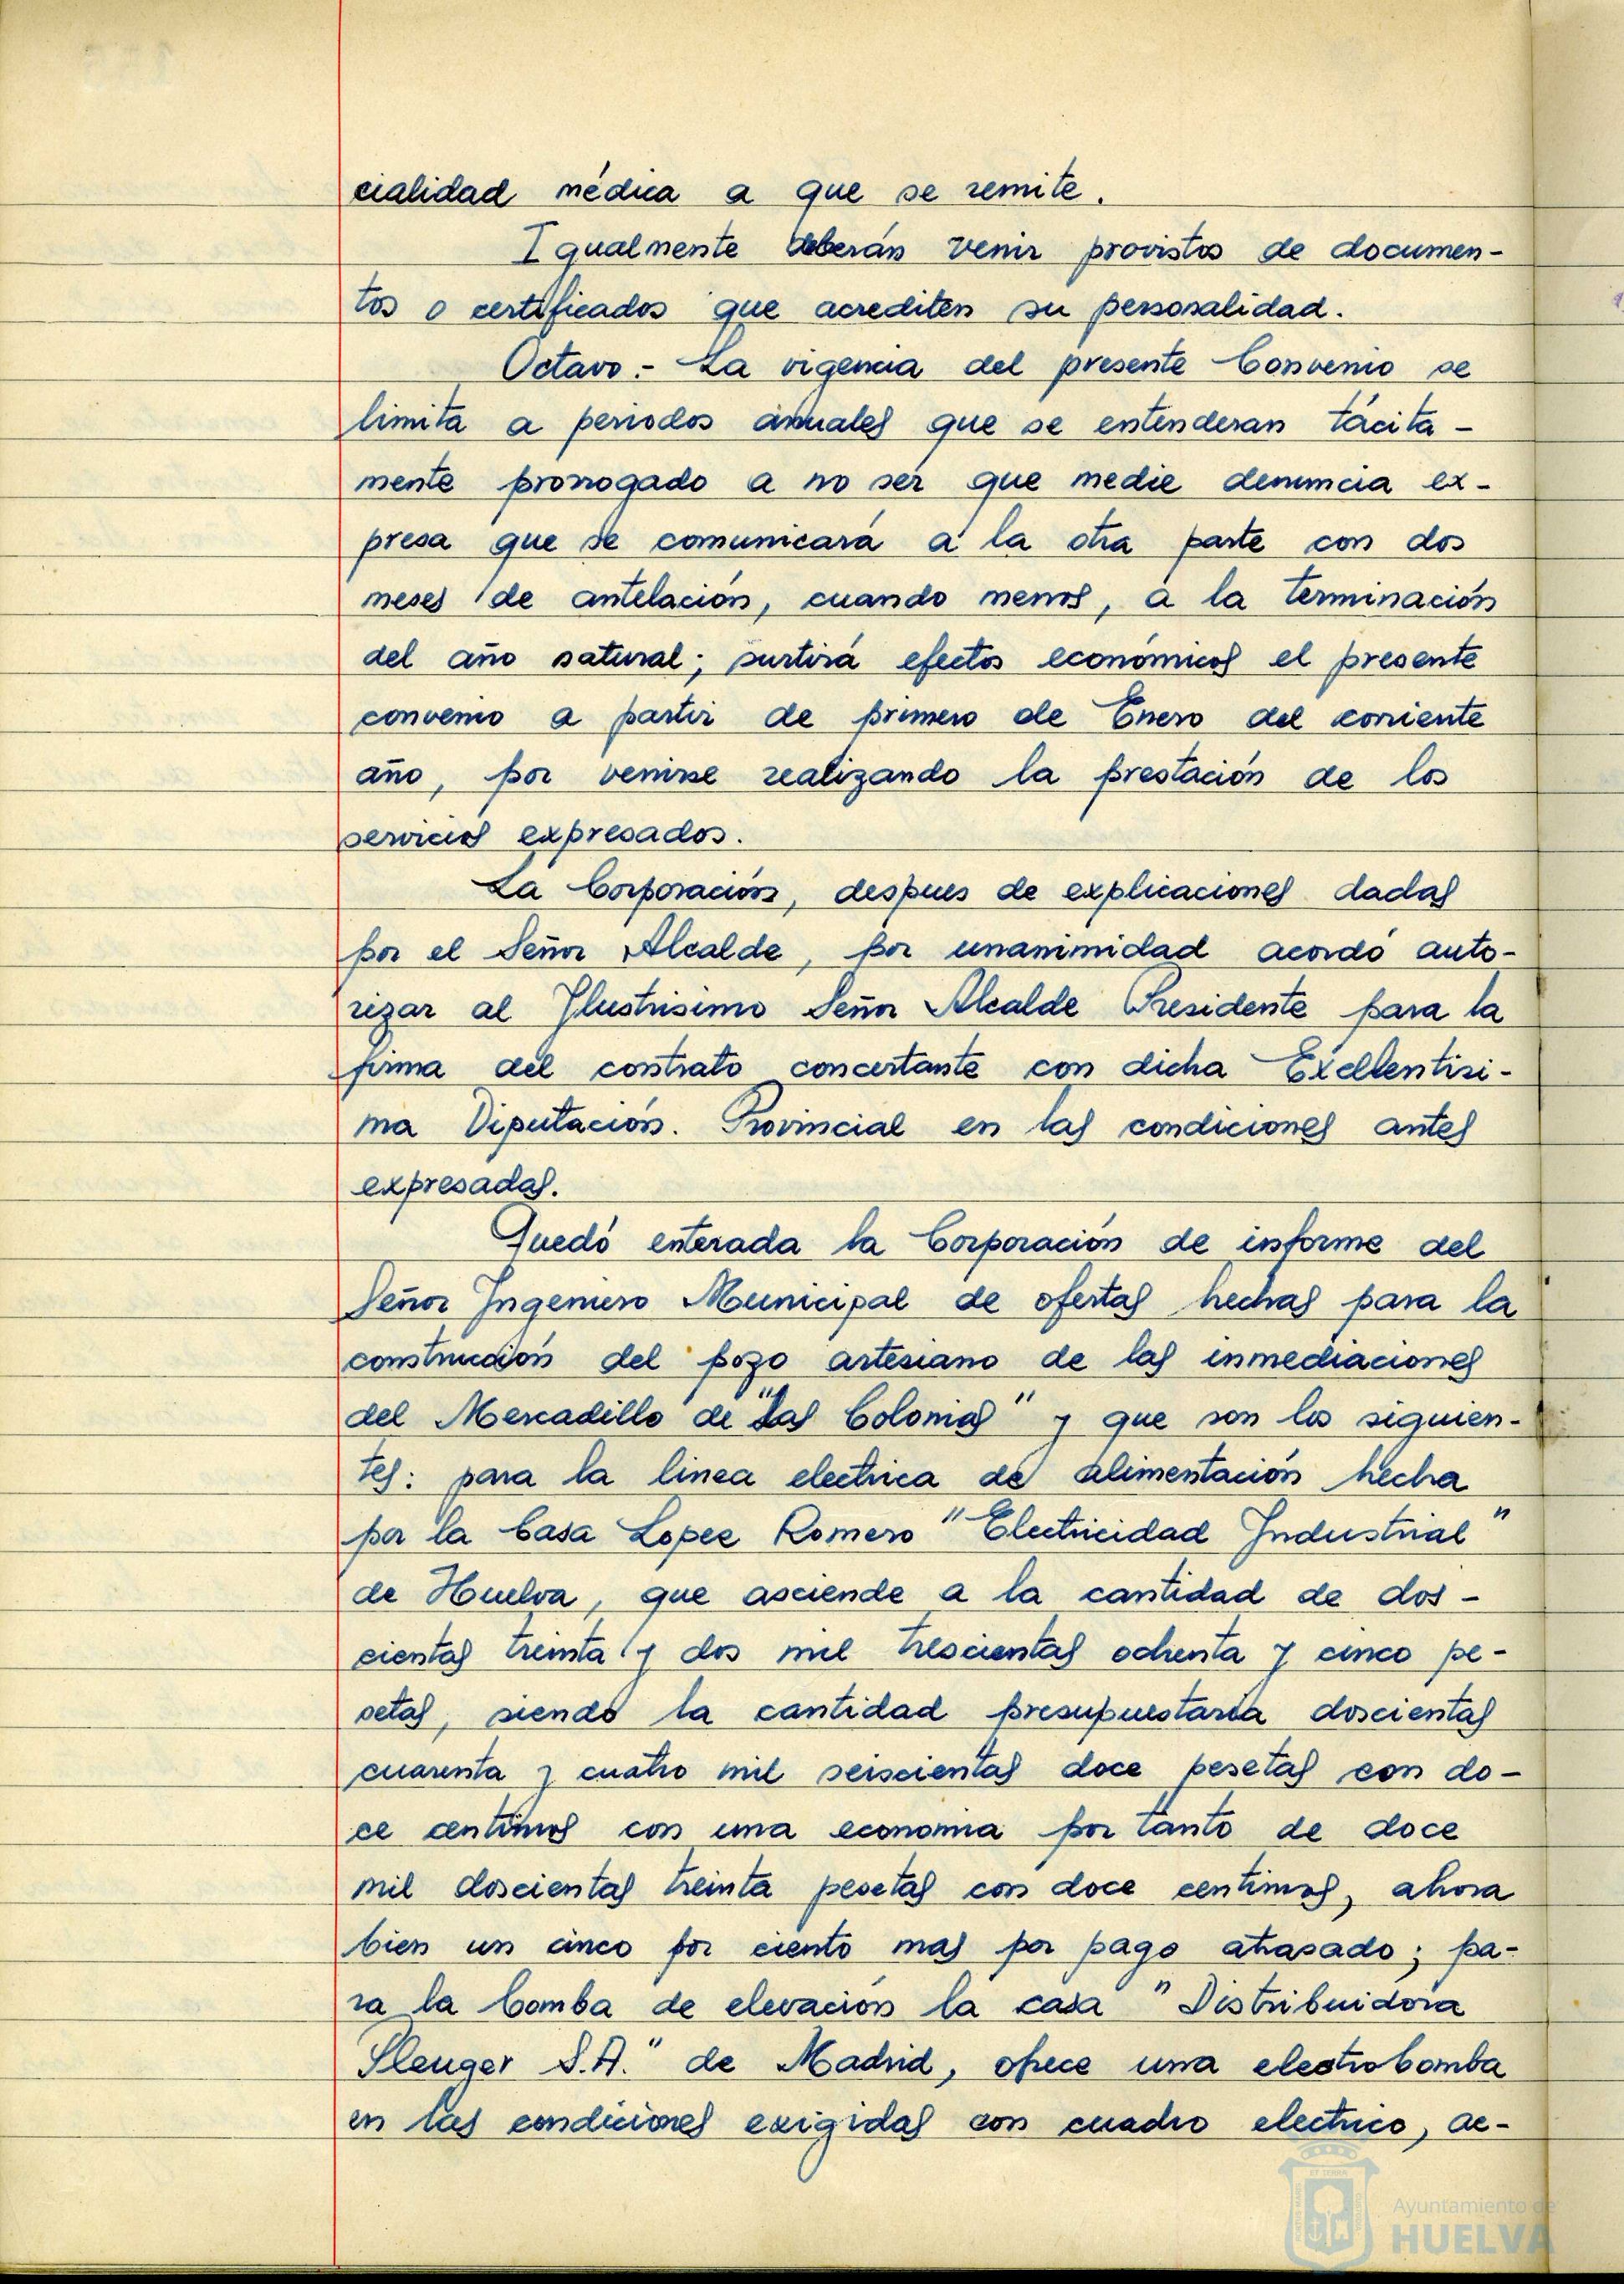 cialidad médica a que se remite.
Igualmente deberán venir provistos de documen-
tos o certificados que acrediten su personalidad.
Octavo.- La vigencia del presente Convenio se
limita a periodos anuales que se entenderan tácita-
mente prorrogado a no ser que medie denuncia ex-
presa que se comunicará a la otra parte con dos
meses de antelación, cuando menos, a la terminación
del año natural; surtirá efectos económicos el presente
convenio a partir de primero de Enero del corriente
año, por venirse realizando la prestación de los
servicios expresados.
La Corporación, despues de explicaciones dadas
por el Señor Alcalde, por unanimidad acordó auto-
rizar al Ilustrisimo Señor Alcalde Presidente para la
firma del contrato concertante con dicha Excellentisi-
ma Diputación. Provincial en las condiciones antes
expresadas.
Quedó enterada la Corporación de informe del
Señor Ingeniero Municipal de ofertas hechas para la
construcción del pozo artesiano de las inmediaciones
del Mercadillo de "Las Colonias" y que son los siguien-
tes: para la linea electrica de alimentación hecha
por la Casa Lopez Romero "Electricidad Industrial"
de Huelva, que asciende a la cantidad de dos-
cientas treinta y dos mil trescientas ochenta y cinco pe-
setas, siendo la cantidad presupuestaria doscientas
cuarenta y cuatro mil seiscientas doce pesetas con do-
ce centimos con una economia por tanto de doce
mil doscientas treinta pesetas con doce centimos, ahora
bien un cinco por ciento mas por pago atrasado; pa-
ra la bomba de elevación la casa "Distribuidora
Pleuger S.A." de Madrid, ofrece una electrobomba
en las condiciones exigidas con cuadro electrico, ac-
Ayuntamiento de
HUELVA